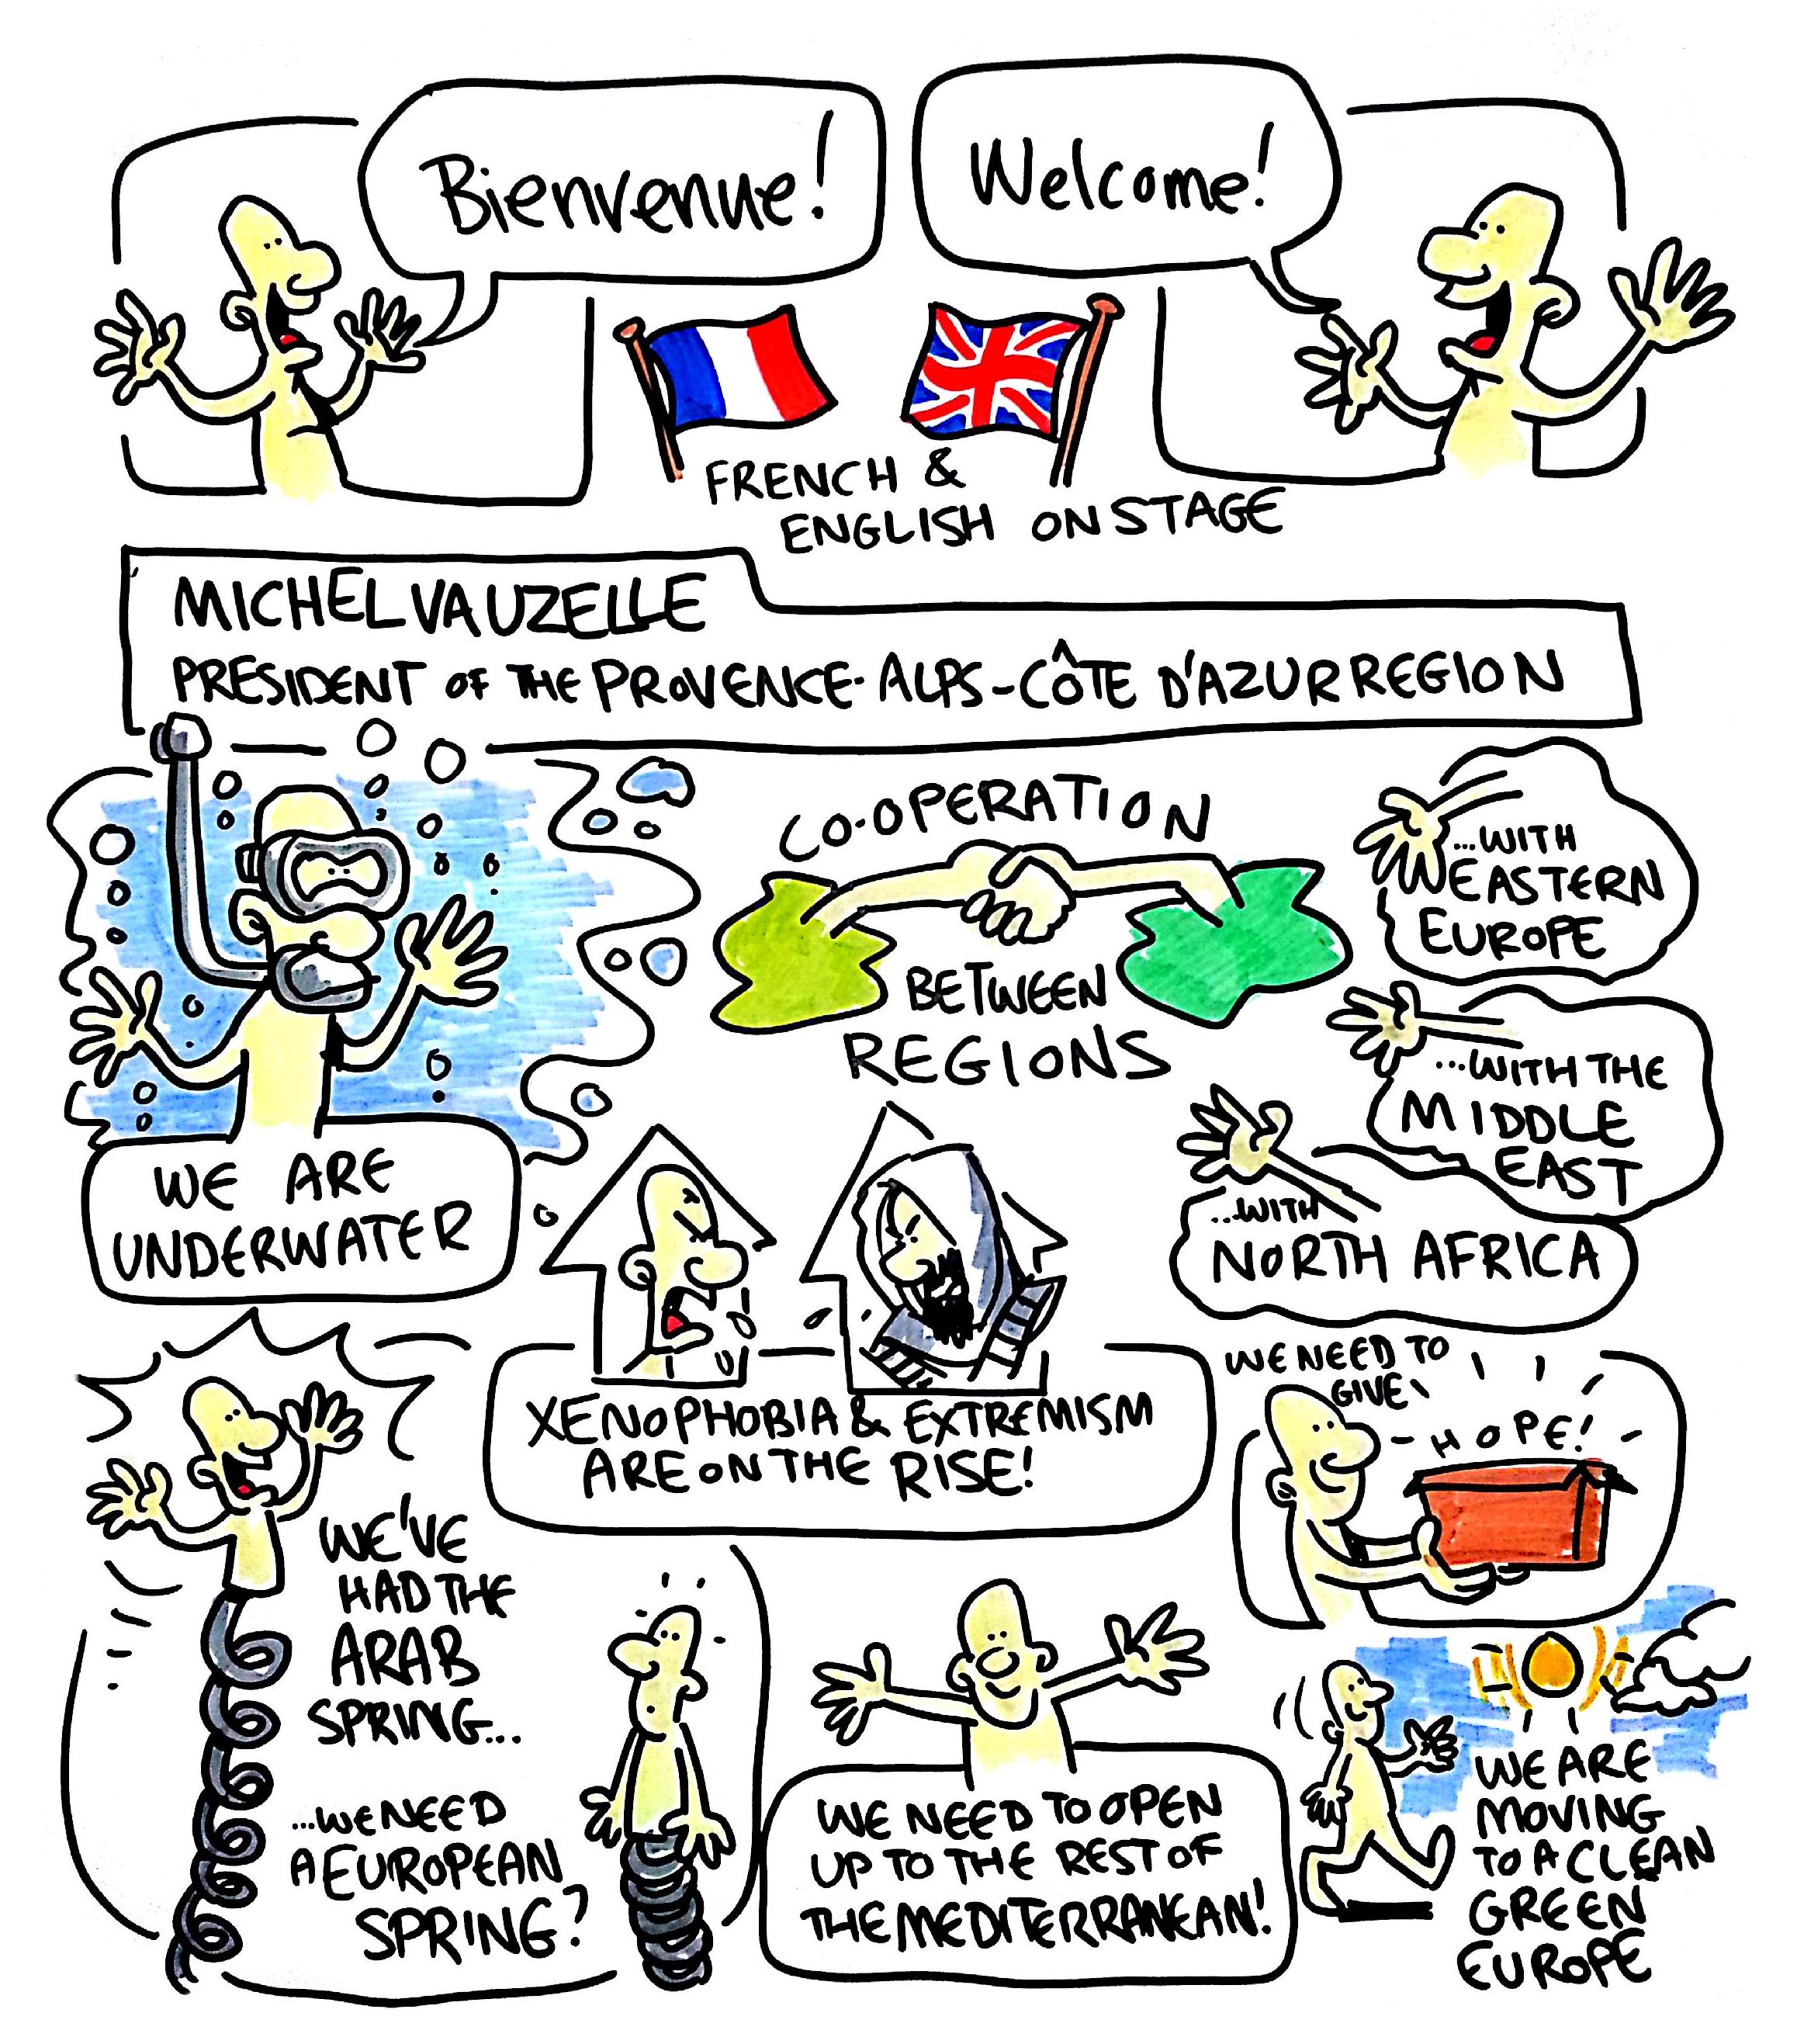 Bienvenue!
Welcome!
FRENCH &
ENGLISH ON STAGE
MICHEL VAUZELLE
PRESIDENT OF THE PROVENCE-ALPS-CÔTE D'AZUR REGION
WE ARE
UNDERWATER
CO-OPERATION
BETWEEN
REGIONS
...WITH
EASTERN
EUROPE
...WITH THE
MIDDLE
EAST
...WITH
NORTH AFRICA
XENOPHOBIA & EXTREMISM
ARE ON THE RISE!
WE NEED TO
GIVE
HOPE!
WE'VE
HAD THE
ARAB
SPRING...
...WE NEED
A EUROPEAN
SPRING?
WE NEED TO OPEN
UP TO THE REST OF
THE MEDITERRANEAN!
WE ARE
MOVING
TO A CLEAN
GREEN
EUROPE